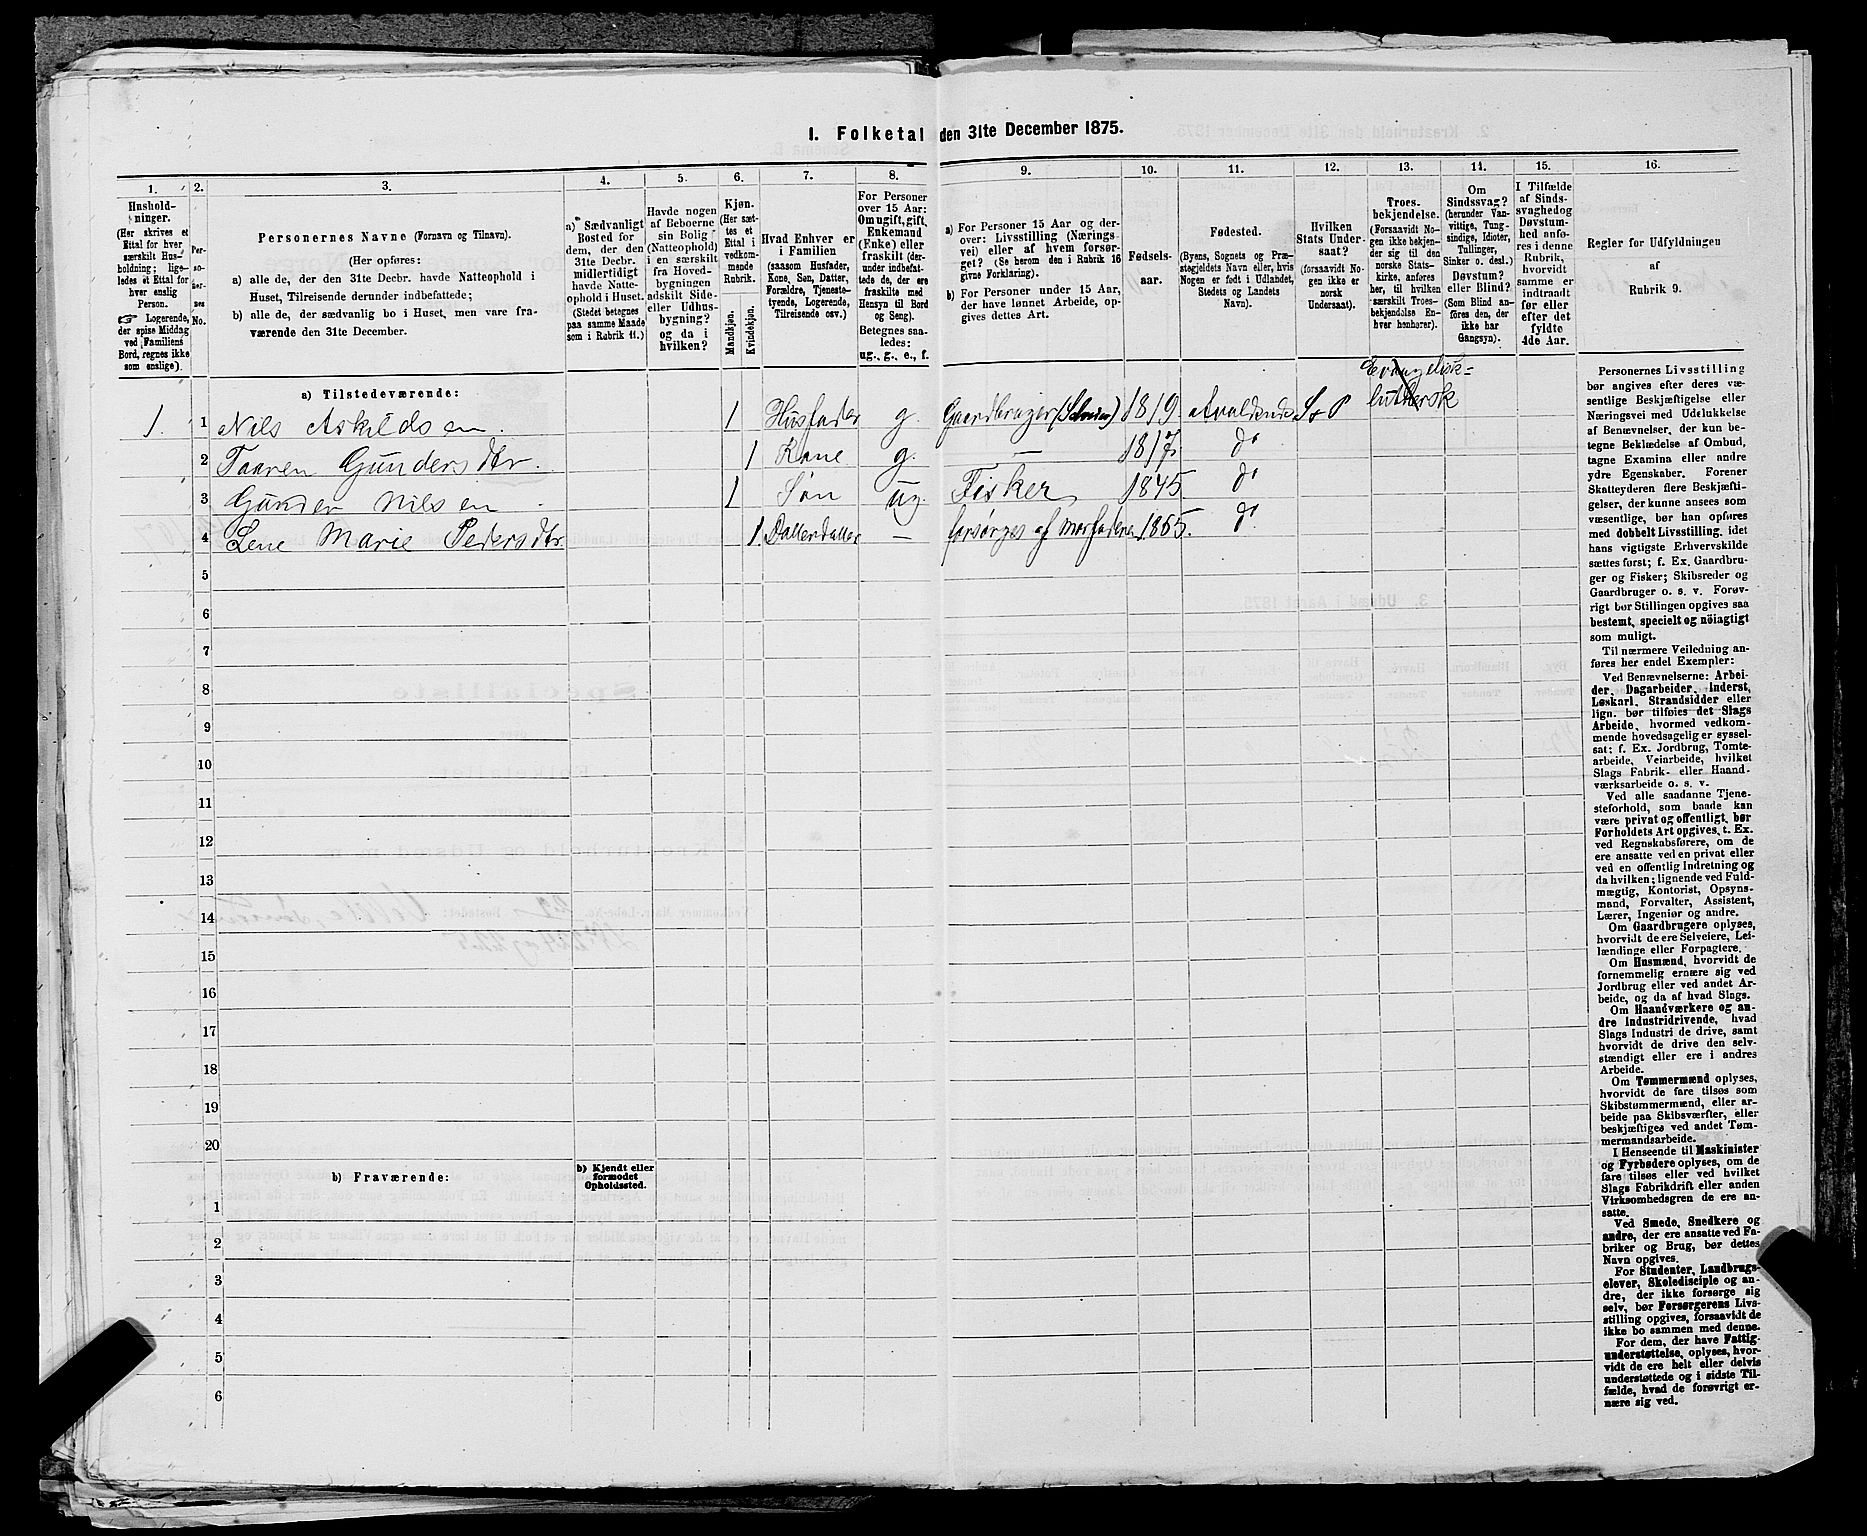 1. Folketal den 31te December 1875.
1. 2. 3. 4. 5. 6. 7. 8. 9. 10. 11. 12. 13. 14. 15. 16.
Hushold-
ninger.
(Her skrives et
Ettal for hver
særskilt Hus-
holdning; lige-
ledes et Ettal for
hver enslig
Person.
☞ Logerende,
der spise Middag
ved Familiens
Bord, regnes ikke
som enslige).
Per-
so-
ner-
nes
No.
Personernes Navne (Fornavn og Tilnavn).
(Her opføres:
a) alle de, der den 31te Decbr. havde Natteophold i
Huset, Tilreisende derunder indbefattede;
b) alle de, der sædvanlig bo i Huset, men vare fra-
værende den 31te December.
a) Sædvanligt
Bosted for
dem, der den
31te Decbr.
midlertidigt
havde Natte-
ophold i Huset.
(Stedet betegnes
paa samme Maade
som i Rubrik 11.)
Havde nogen
af Beboerne
sin Bolig
(Natteophold)
i en særskilt
fra Hoved-
bygningen
adskilt Side-
eller Udhus-
bygning?
og da i
hvilken?
Kjøn.
(Her sæt-
tes et
Ettal i
vedkom-
mende
Rubrik.
Mandkjøn.
Kvindekjøn.
Hvad Enhver er
i Familien
(saasom Husfader,
Kone, Søn, Datter,
Forældre, Tjeneste-
tyende, Logerende,
Tilreisende osv.)
For Personer
over 15 Aar:
Om ugift, gift,
Enkemand
(Enke) eller
fraskilt (der-
under indbefat-
tede de, der ere
fraskilte med
Hensyn til Bord
og Seng).
Betegnes saa-
ledes:
ug., g., e., f.
a) For Personer 15 Aar og der-
over: Livsstilling (Nærings-
vei) eller af hvem forsør-
get? (Se herom den i Rubrik 16
givne Forklaring).
b) For Personer under 15 Aar,
der have lønnet Arbeide, op-
gives dettes Art.
Fødsels-
aar.
Fødested.
(Byens, Sognets og Præ-
stegjeldets Navn eller, hvis
Nogen er født i Udlandet,
Stedets og Landets
Navn).
Hvilken
Stats Under-
saat?
(forsaavidt No-
gen ikke er
norsk
Undersaat).
Troes-
bekjendelse.
(Forsaavidt No-
gen ikke bekjen-
der sig til den
norske Stats-
kirke, anføres
her, til hvilken
særskilt Troes-
bekjendelse En-
hver henhører).
Om
Sindssvag?
(herunder Van-
vittige, Tung-
sindige, Idioter,
Tullinger,
Sinker o. desl.)
Døvstum?
eller Blind?
(Som Blind an-
føres den, der
ikke har
Gangsyn).
I Tilfælde
af Sinds-
svaghed og
Døvstum-
hed anfø-
res i denne
Rubrik,
hvorvidt
samme er
indtraadt
før eller
efter det
fyldte
4de Aar.
Regler for Udfyldningen
af
Rubrik 9.
a) Tilstedeværende:
Evangelisk-
luthersk
1. 1 Nils Askildsen. 1 Husfader g. Gaardbruger 1819. S+P
2 Taaren Gundersdtr. 1 Kone g. — 1817. do
3 Gunder Nilsen 1 Søn ug. Fisker 1845 do
4 Lene Marie Pedersdtr. 1. Datterdatter — forsørges af morfaderen 1865. do
5
6
7
8
9
10
11
12
13
14
15
16
17
18
19
20
b) Fraværende:
b) Kjendt eller
formodet
Opholdssted.
1
2
3
4
5
6
Personernes Livsstilling
bør angives efter deres væ-
sentlige Beskjæftigelse eller
Næringsvei med Udelukkelse
af Benævnelser, der kun be-
tegne Beklædelse af Ombud,
tagne Examina eller andre
ydre Egenskaber. Forener
Skatteyderen flere Beskjæfti-
gelser, der kunne ansees som
væsentlige, bør han opføres
med dobbelt Livsstilling, idet
hans vigtigste Erhvervskilde
sættes først; f. Ex. Gaardbru-
ger og Fisker; Skibsreder og
Gaardbruger o. s. v. Forøv-
rigt bør Stillingen opgives saa
bestemt, specielt og nöiagtigt
som muligt.
Til nærmere Veiledning an-
føres her endel Exempler:
Ved Benævnelserne: Arbei-
der, Dagarbeider, Inderst,
Løskarl, Strandsidder eller
lign. bør tilføies det Slags
Arbeide, hvormed vedkom-
mende hovedsagelig er syssel-
sat; f. Ex. Jordbrug, Tomte-
arbeide, Veiarbeide, hvilket
Slags Fabrik- eller Haand-
værksarbeide o. s. v.
Ved alle saadanne Tjene-
steforhold, som baade kan
være privat og offentligt, bør
Forholdets Art opgives, t. Ex.
ved Regnskabsførere, om de
ere ansatte ved en privat eller
ved en offentlig Indretning og
da hvilken; lignende ved Fuld-
mægtig, Kontorist, Opsyns-
mand, Forvalter, Assistent,
Lærer, Ingeniør og andre.
Om Gaardbrugere oplyses,
hvorvidt de ere Selveiere, Lei-
lændinge eller Forpagtere.
Om Husmænd, hvorvidt de
fornemmelig ernære sig ved
Jordbrug eller ved andet Ar-
beide, og da af hvad Slags.
Om Haandværkere og an-
dre Industridrivende, hvad
Slags Industri de drive, samt
hvorvidt de drive den selv-
stændigt eller ere i andres
Arbeide.
Om Tømmermænd oplyses,
hvorvidt de fare tilsøs som
Skibstømmermænd, eller ar-
beide paa Skibsværfter, eller
beskjæftiges ved andet Tøm-
mermandsarbeide.
I Henseende til Maskinister
og Fyrbødere oplyses, om de
fare tilsøs eller ved hvilket
Slags Fabrikdrift eller anden
Virksomhedsgren de ere an-
satte.
Ved Smede, Snedkere og
andre, der ere ansatte ved Fa-
briker og Brug, bør dettes
Navn opgives.
For Studenter, Landbrugs-
elever, Skoledisciple og an-
dre, der ikke forsørge sig
selv, bør Forsørgerens Livs-
stilling opgives, forsaavidt de
ikke bo sammen med denne.
For dem, der have Fattig-
understøttelse, oplyses, hvor-
vidt de ere helt eller delvis
understøttede og i sidste Til-
fælde, hvad de forøvrigt er-
nære sig ved.